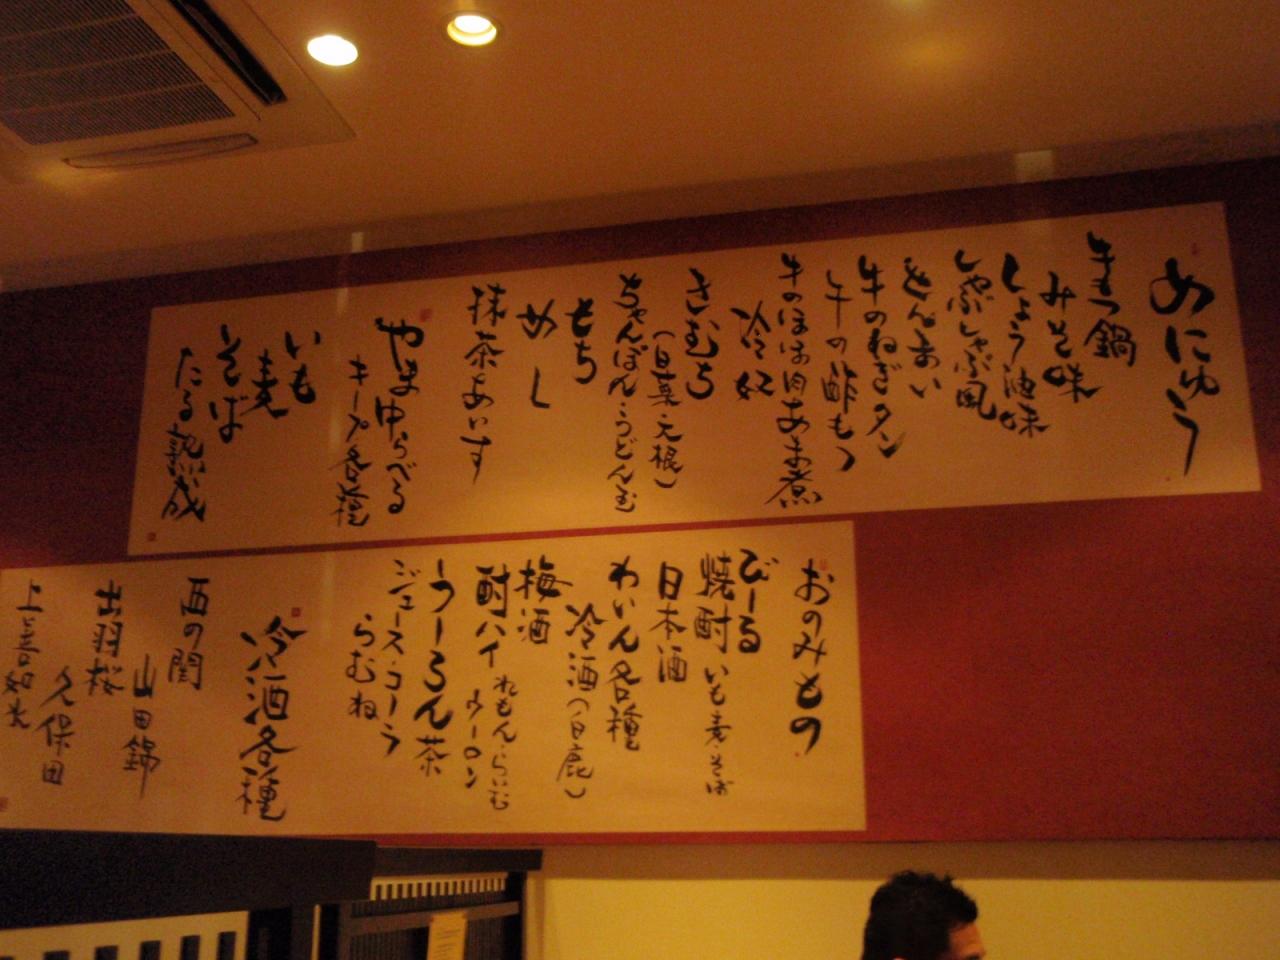 めにゅう
牛もつ鍋
みそ味
しょう油味
しゃぶしゃぶ風
牛のねぎタン
牛の酢もつ
牛のほほ肉あま煮
冷奴
きむち
(白菜・大根)
ちゃんぽん・うどん玉
もち
めし
抹茶あいす
やまゆらべる
キープ各種
いも
麦
そば
たる熟成
おのみもの
びーる
焼酎 いも・麦・そば
日本酒
わいん各種
冷酒(白鹿)
梅酒
酎ハイ れもん・らいむ
ウーロン
うーろん茶
ジュース・コーラ
らむね
冷酒各種
西の関
山田錦
出羽桜
久保田
上喜如光